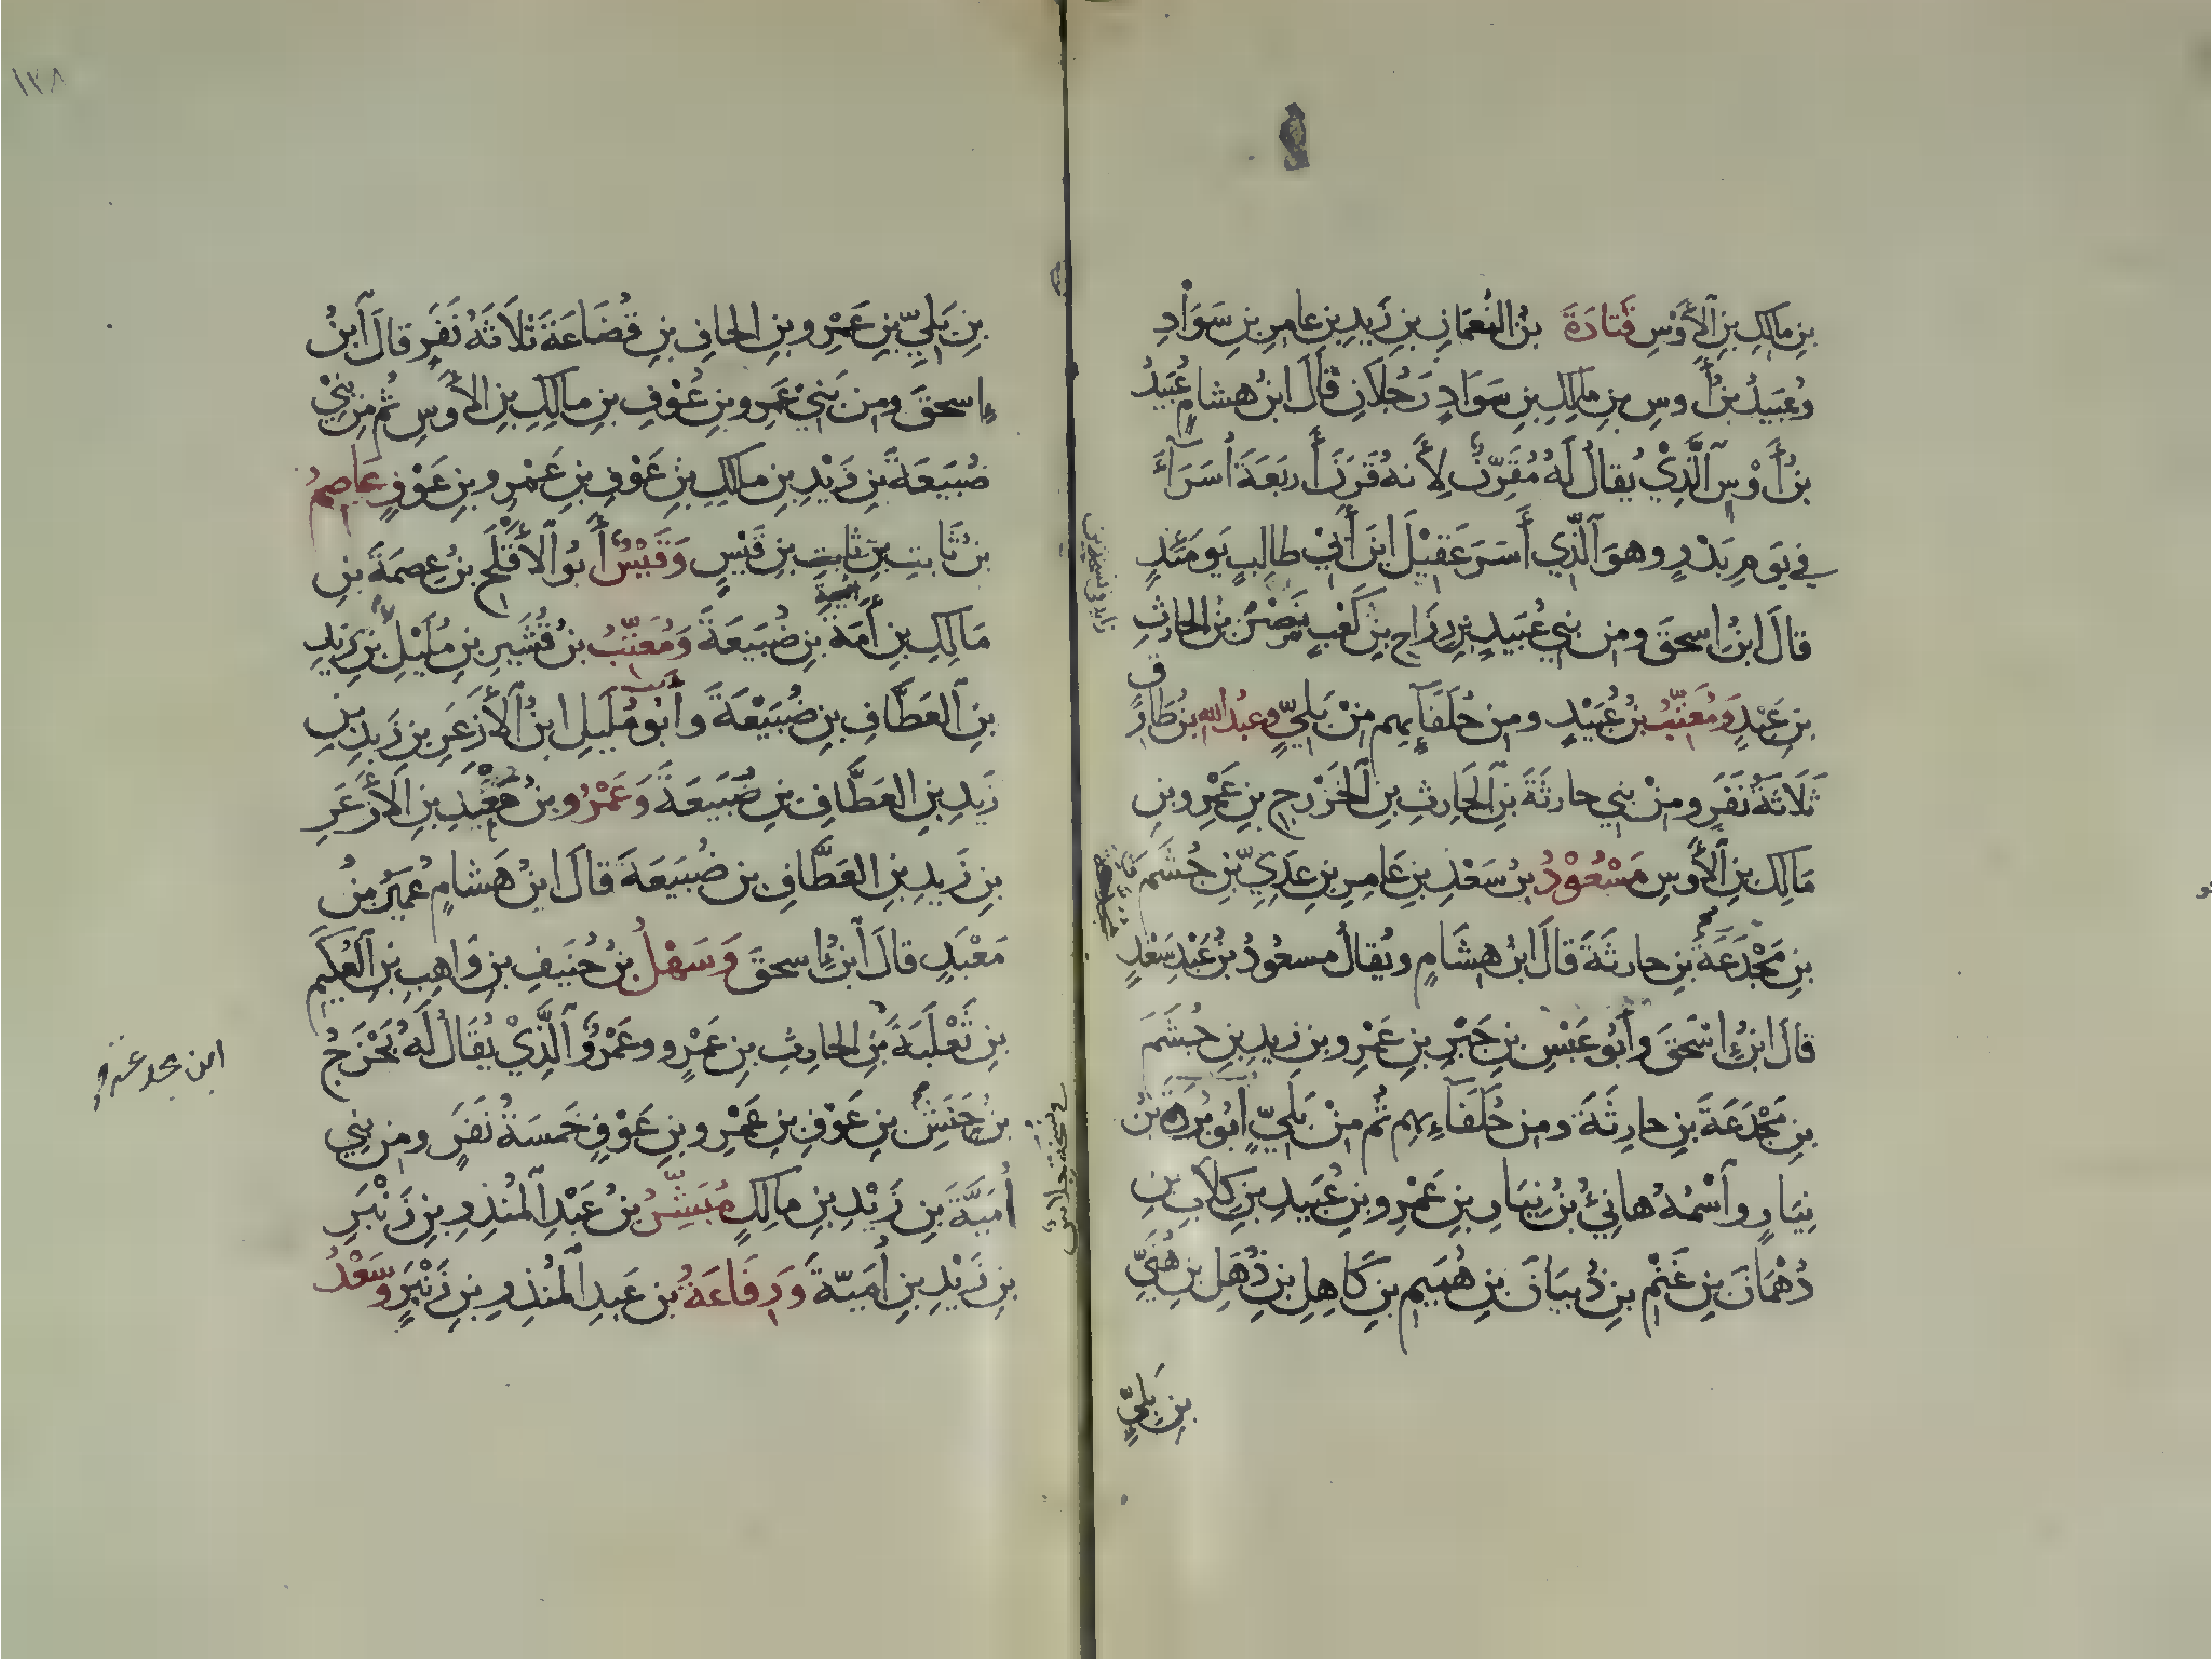 بنِ مالِكِ بنِ الأَوْسِ قَتادَةَ بنُ النُعمَانِ بنِ زَيدِ بنِ عامرِ بنِ سَوَادِ
وعُبَيدُ بنُ أَوسِ بنِ مالكِ بنِ سَوَادٍ رَجُلَانِ قَالَ ابنُ هشامٍ عُبَيدُ
بنُ أَوْسٍ الَّذِيْ يُقالُ لَهُ مُقَرِّنٌ لِأَنهُ قَرَنَ أَربَعَةَ أُسَرَآءَ
في يَومِ بَدْرٍ وهوَ الَّذِي أَسَرَ عَقِيْلَ ابنَ أَبِيْ طالِبٍ يَومَئِذٍ
قالَ ابنُ اسحقَ ومِن بني عُبَيدِ بنِ رِزَاحِ بنِ كَعْبٍ نَصْرُ بنُ الحارثِ
بنِ عَبْدٍ وَمُعَتِّبُ بنُ عُبَيْدٍ ومِن حُلَفَآئِهِم مِنْ بَلِيٍّ وعبدُ الله بنُ طارِق
ثَلَاثَةُ نَفَرٍ ومِنْ بني حارثَةَ بنِ الحَارِثِ بنِ الخَزْرجِ بنِ عَمْرِو بنِ
مَالِكِ بنِ الأَوسِ مَسْعُوْدُ بنُ سَعْدِ بنِ عَامِرِ بنِ عَدِيِّ بنِ جُشَمَ
بنِ مَجْدَعَةَ بنِ حارثَةَ قالَ ابنُ هشَامٍ ويُقالُ مسعُودُ بنُ عَبْدِ سَعْدٍ
قالَ ابنُ إسْحَقَ وأَبُو عَبْسِ بنِ جَبْرِ بنِ عَمْرِو بنِ زيدِ بنِ جُشَمَ
بنِ مَجْدَعَةَ بنِ حارِثَةَ ومِن حُلَفَآءِهِم ثُم مِنْ بَلِيٍّ أَبُو بُرْدَةَ بنُ
نِيَارٍ وآسْمُهُ هانِئُ بنُ نِيَارِ بنِ عَمْرِو بنِ عُبَيدِ بنِ كِلَابِ بنِ
دُهْمَانَ بنِ غَنْمِ بنِ ذُبيَانَ بنِ هُمَيمِ بنِ كَاهِلِ بنِ ذُهْلِ بنِ هُنَيِّ
بنِ بَلِيِّ
١٣٨
بنِ بَلِيِّ بنِ عَمْرِو بنِ الحافِ بنِ قُضَاعَةَ ثلَاثَةُ نَفَرٍ قالَ ابنُ
إسحقَ ومن بَنِيْ عَمرِو بنِ عَوْفِ بنِ مالِكِ بنِ الأَوسِ ثُم مِن بَنِيْ
ضُبَيعَةَ بنِ زَيْدِ بنِ مالِكِ بنِ عَوْفِ بنِ عَمْرِو بنِ عَوْفٍ عَاصِمُ
بنُ ثَابتِ بنِ ثابتِ بنِ قَيْسٍ وَقَيْسٌ أَبُو الأَقْلَحِ بنُ عِصمَةَ بنِ
مَالِكِ بنِ أَمَةَ بنِ ضُبَيعَةَ وَمُعَتِّبُ بنُ قُشَيرِ بنِ مُلَيْلِ بنِ زَيدِ
بنِ العَطَّافِ بنِ ضُبَيْعَةَ وأَبُو مُلَيلِ ابنُ الأَزعَرِ بنِ زَيدِ بنِ
زَيدِ بنِ العَطَّافِ بنِ ضُبَيعَةَ وَعَمْرُو بنُ مَعْبَدِ بنِ الأَزعَرِ
بنِ زَيدِ بنِ العَطَّافِ بنِ ضُبَيعَةَ قالَ ابنُ هَشامٍ عُمَيرُ بنُ
مَعْبَدٍ قالَ ابنُ إسحقَ وَسَهْلُ بنُ حُنَيفِ بنِ وَاهِبِ بنِ العُكَيمِ
بنِ ثَعْلَبَةَ بنِ الحارِثِ بنِ عَمْرٍو وعَمْرٌو الَّذِيْ يُقَالُ لَهُ بَحْزَجُ
بنُ حَنَشِ بنِ عَوْفِ بنِ عَمْرِو بنِ عَوْفٍ خَمسَةُ نَفَرٍ ومِن بنِي
أُمَيَّةَ بنِ زَيْدِ بنِ مالِكٍ مُبَشِّرُ بنُ عَبْدِ المُنذِرِ بنِ زَنْبَرِ
بنِ زَيْدِ بنِ أُمَيّةَ وَرِفَاعَةُ بنِ عَبدِ المُنذِرِ بنِ زَنْبَرٍ وسَعْدُ